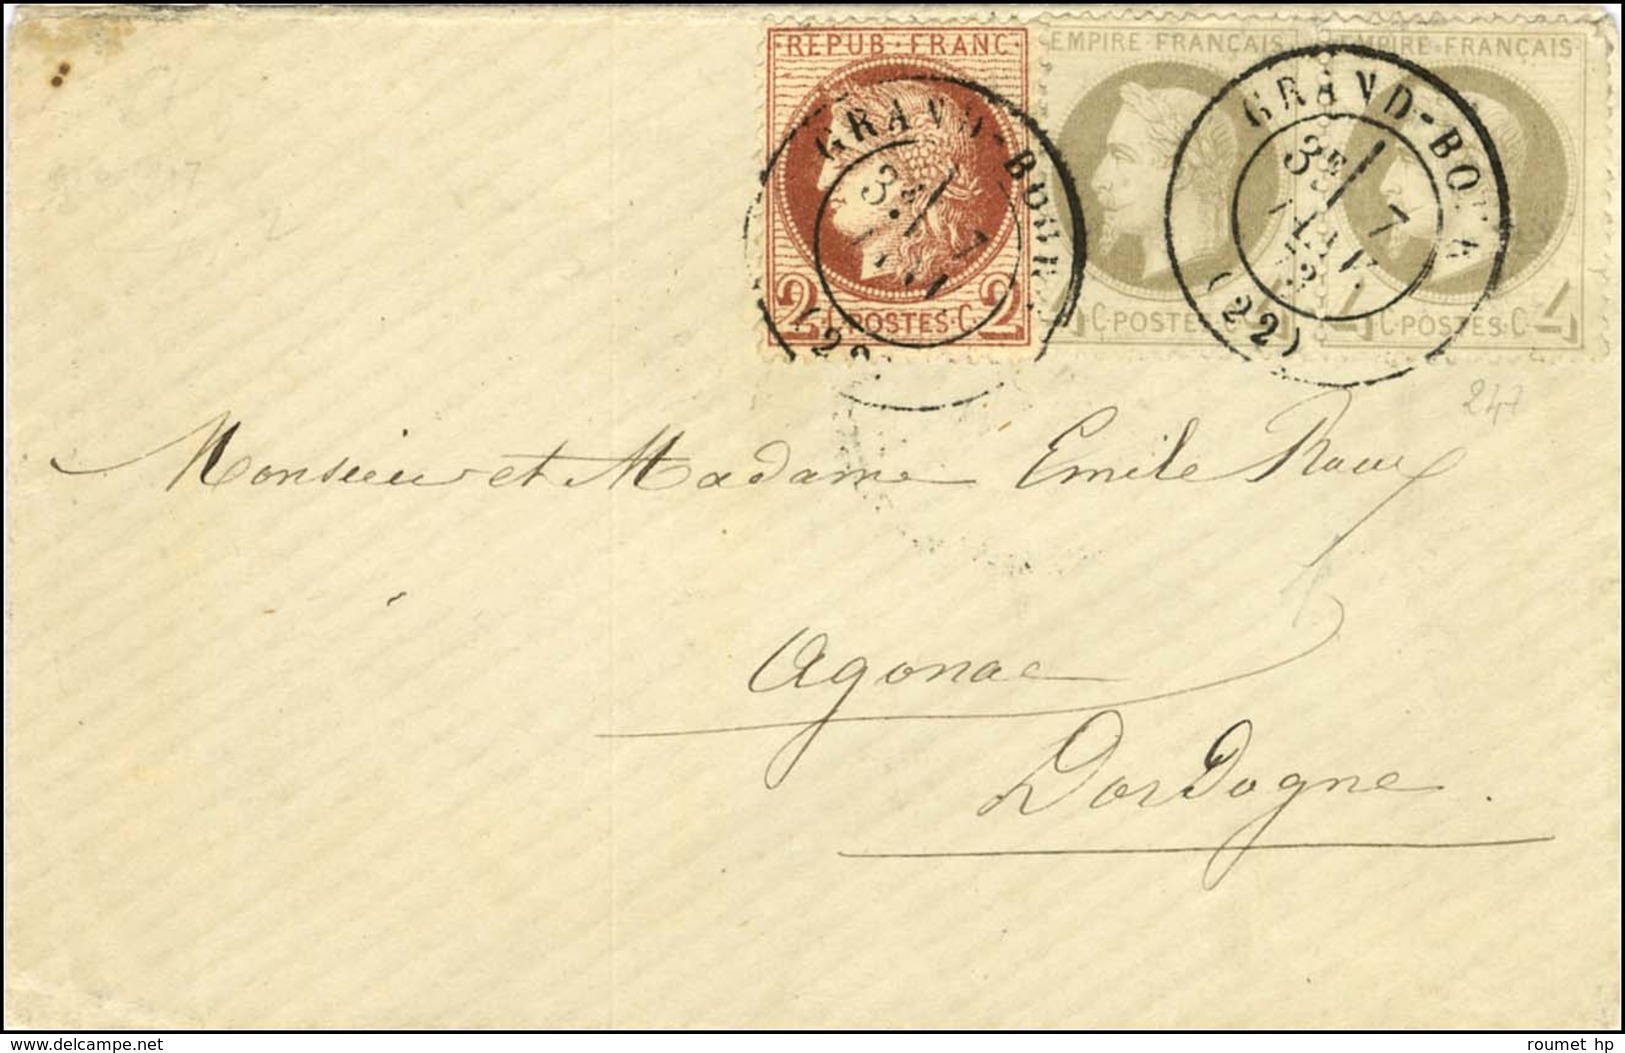 REPUB·FRANC·
EMPIRE FRANÇAIS
EMPIRE FRANÇAIS
GRAND-BOUR
GRAND-BOU
3E 7
3E 7
JANV.
(22)
2 C·POSTES·C· 2
4 C·POSTES·C 4
4 C·POSTES·C 4
247
Monsieur et Madame Emile Roux
Agonac
Dordogne.
www.delcampe.net
roumet hp